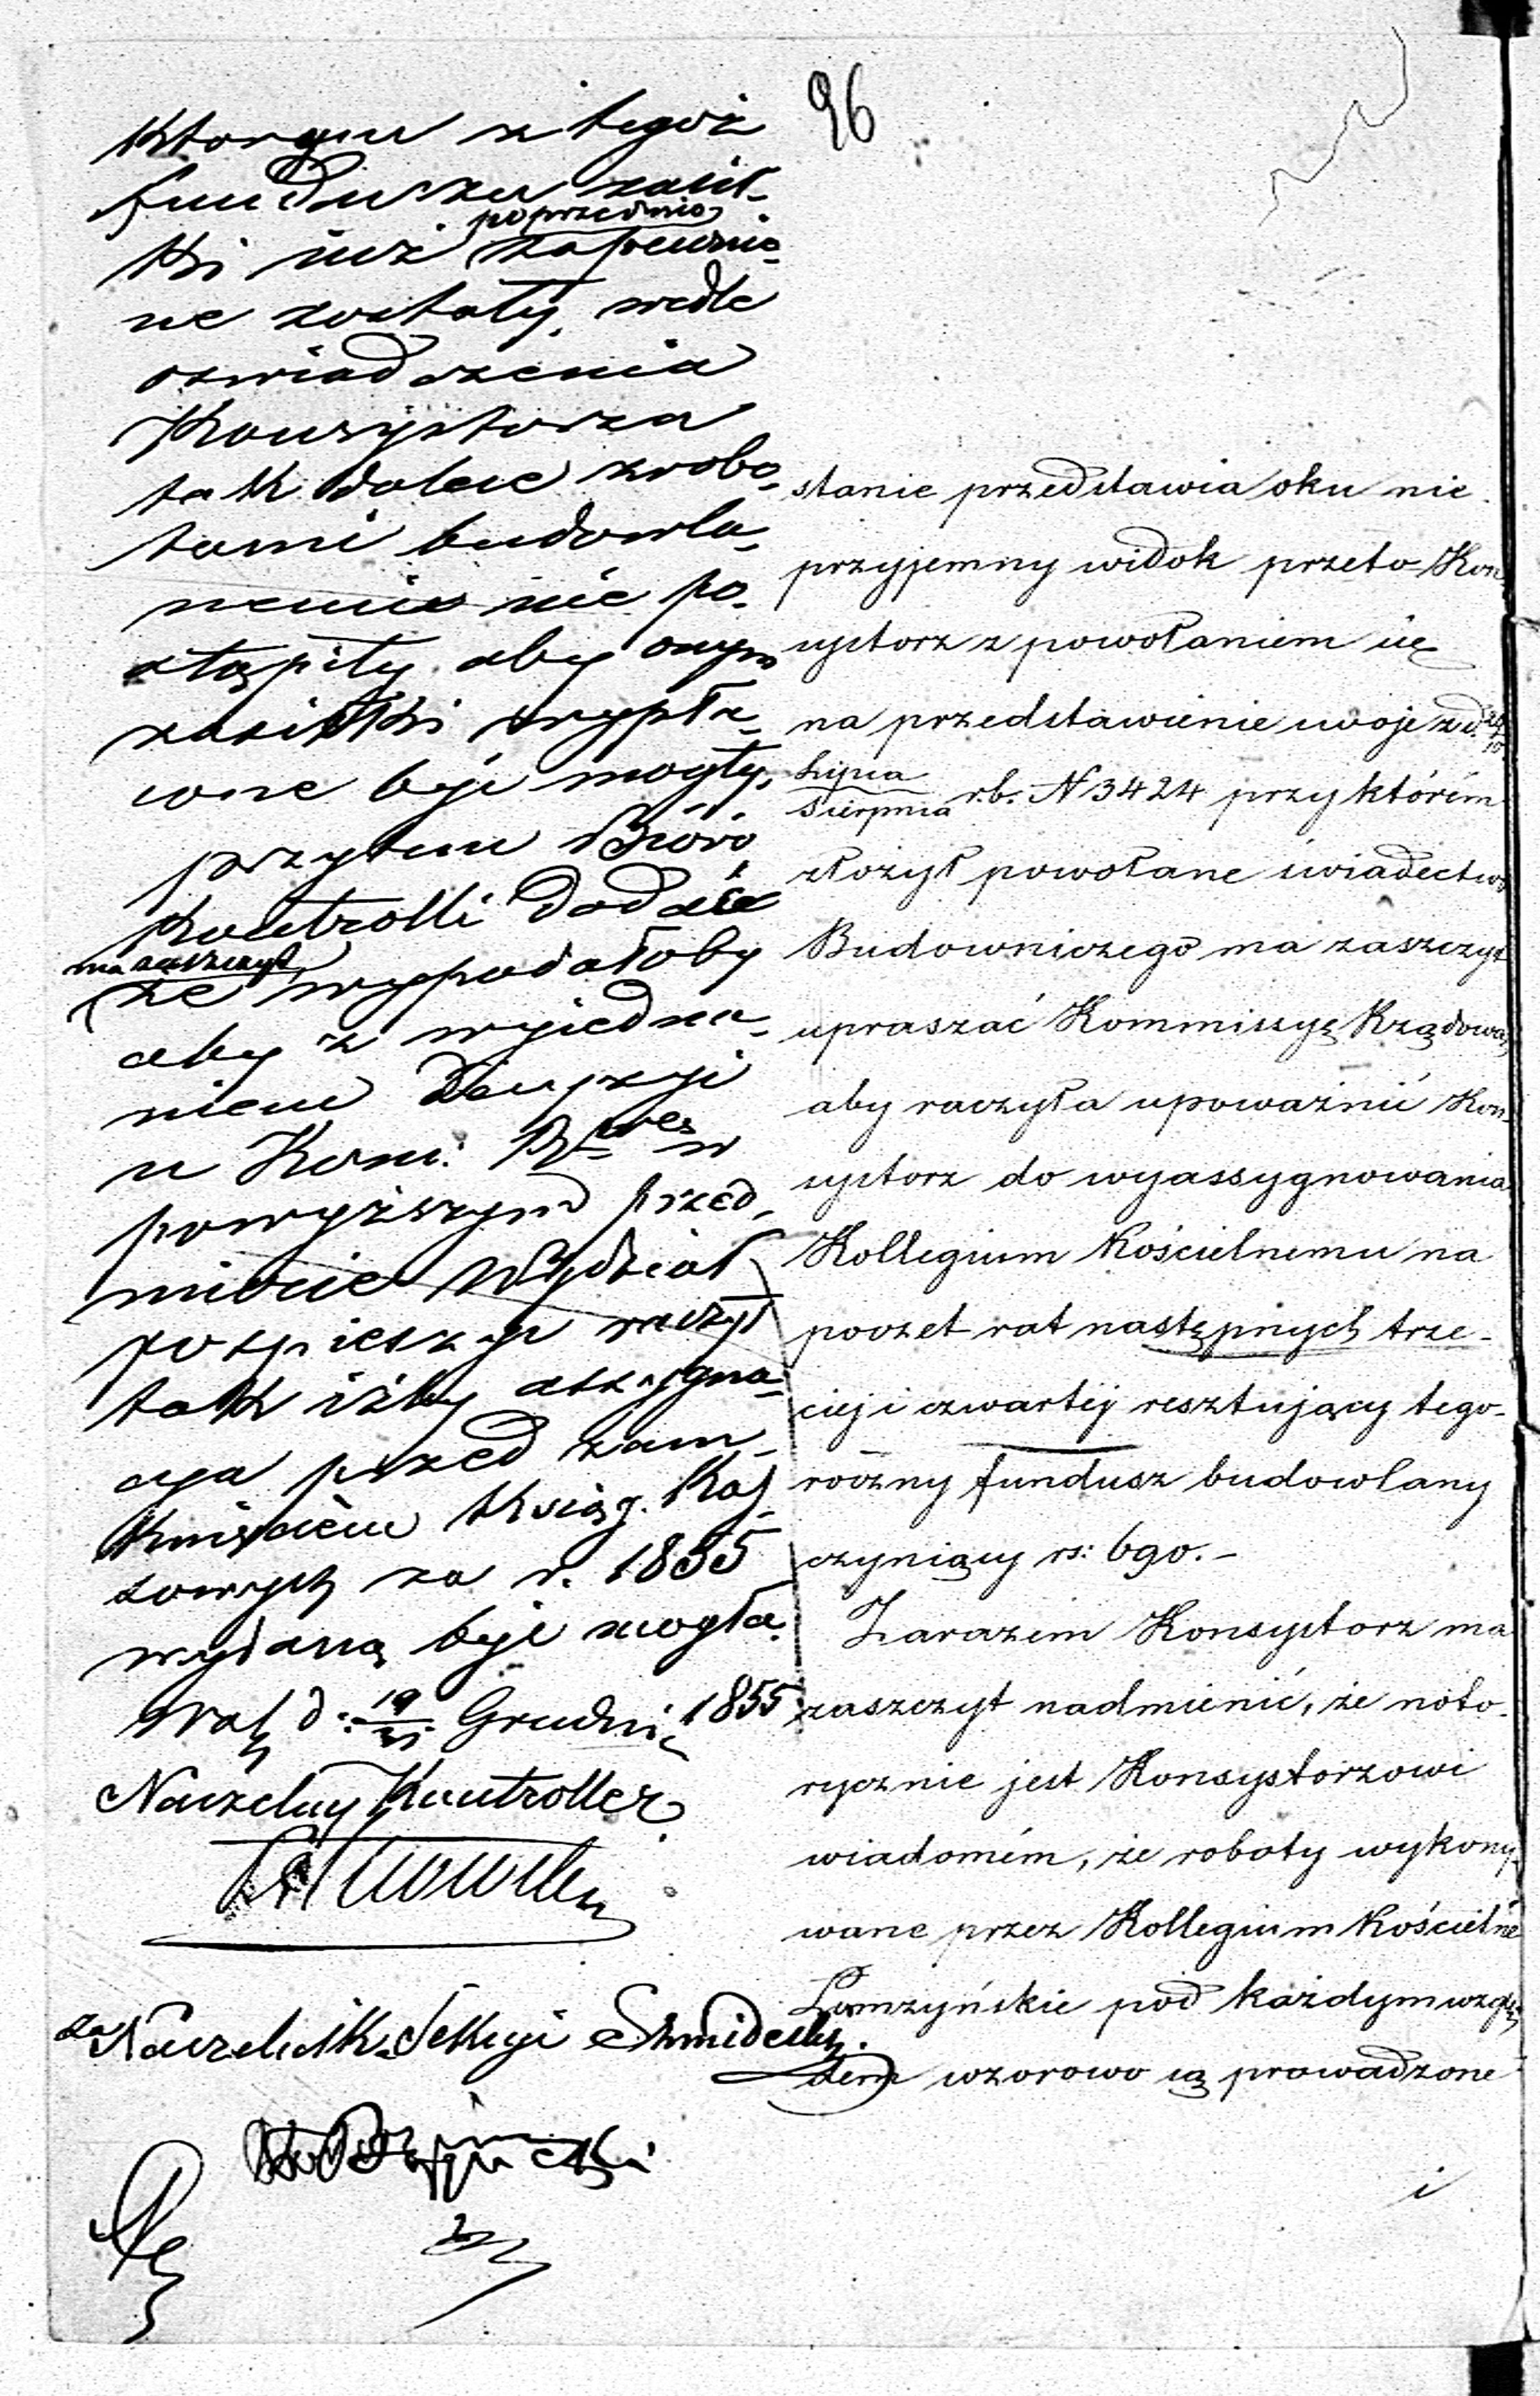 96
którym z tegoż
funduszu zasił-
ki już poprzednio zapewnio-
ne zostały, wedle
oświadczenia
Konsystorza
tak daleko z robo-
tami budowla-
nemi nie po-
stąpiły aby onym
zasiłki wypła-
cone być mogły,
przytem Bióro
Kontrolli dodać
ma zaszczyt
że wypadałoby
aby z wyjedna-
niem Decyzji
u Kom: Rz
w
powyższym przed-
miocie Wydział
pospieszyć raczył
tak iżby assygna-
cya przed zam-
knięciem Ksiąg Kas-
sowych za r. 1855
wydaną być mogła.
Wa d: 19/31 Grudnia 1855
Naczelny Kontroller
za Naczelnik Sekcyi
stanie przedstawia oku nie-
przyjemny widok przeto Kon-
systorz z powołaniem się
na przedstawienie swoje z d.
Lipca/Sierpnia r.b. N 3424 przy którém
złożył powołane świadectwo
Budowniczego ma zaszczyt
upraszać Kommissyę Rządową
aby raczyła upoważnić Kon-
systorz do wyassygnowania
Kollegium Kościelnemu na
poczet rat następnych trze-
ciej i czwartej resztujący tego-
roczny fundusz budowlany
czyniący rs: 690.-
Zarazem Konsystorz ma
zaszczyt nadmienić, że noto-
rycznie jest Konsystorzowi
wiadomém, że roboty wykony-
wane przez Kollegium Kościelne
Łomzyńskie pod każdym wzglę-
dem wzorowo są prowadzone
i